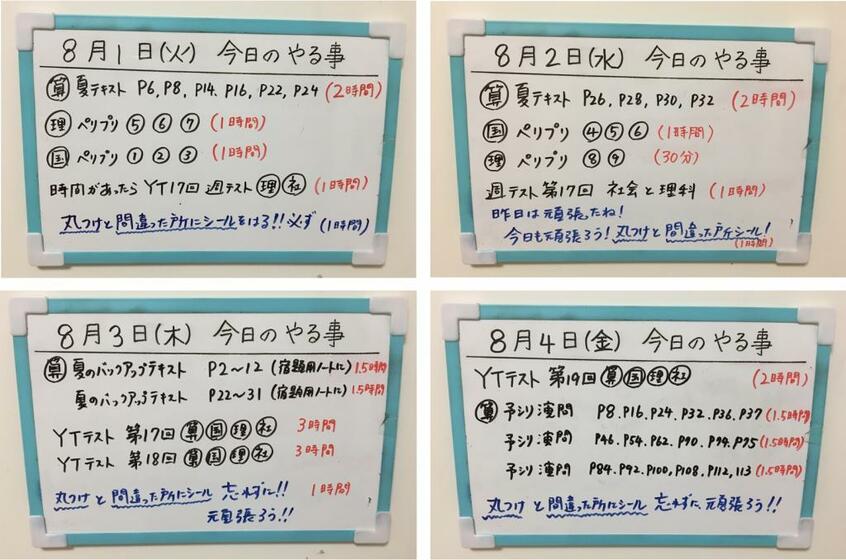 8月1日(火) 今日のやる事
㊥算 夏テキスト P6, P8, P14, P16, P22, P24 (2時間)
理 ペリプリ ⑤ ⑥ ⑦ (1時間)
国 ペリプリ ① ② ③ (1時間)
時間があったら YT17回 週テスト 理 社 (1時間)
丸つけと間違った所にシールをはる!! 必ず (1時間)
8月2日(水) 今日のやる事
算 夏テキスト P26, P28, P30, P32 (2時間)
国 ペリプリ ④ ⑤ ⑥ (1時間)
理 ペリプリ ⑧ ⑨ (30分)
週テスト 第17回 社会と理科 (1時間)
昨日は頑張ったね!
今日も頑張ろう! 丸つけと間違った所シール!
(1時間)
8月3日(木) 今日のやる事
算 夏のバックアップテキスト P2〜12 (宿題用ノートに) 1.5時間
夏のバックアップテキスト P22〜31 (宿題用ノートに) 1.5時間
YTテスト 第17回 算 国 理 社 3時間
YTテスト 第18回 算 国 理 社 3時間
丸つけ と 間違った所にシール 忘れずに!! 1時間
頑張ろう!!
8月4日(金) 今日のやる事
YTテスト 第19回 算 国 理 社 (2時間)
算 予シリ演問 P8. P16. P24. P32. P36. P37 (1.5時間)
予シリ演問 P46. P54. P62. P70. P74. P75 (1.5時間)
予シリ演問 P84. P92. P100, P108. P112, 113 (1.5時間)
丸つけ と 間違った所にシール 忘れずに、頑張ろう!!